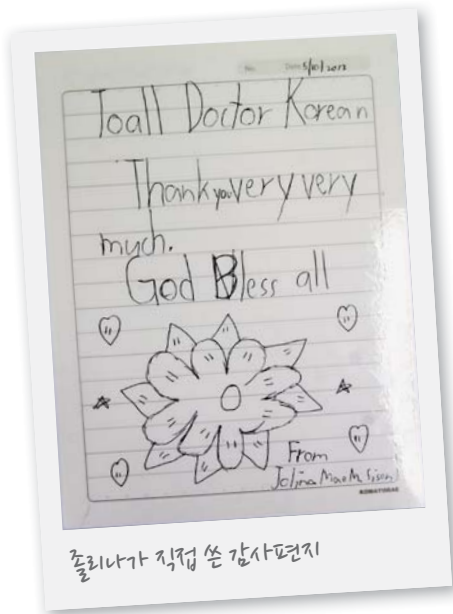 No. Date 5/10/2012
Toall Doctor Korean
Thank you very very
much.
God Bless all
From
Jolina Mae M. Sison
졸리나가 직접 쓴 감사편지